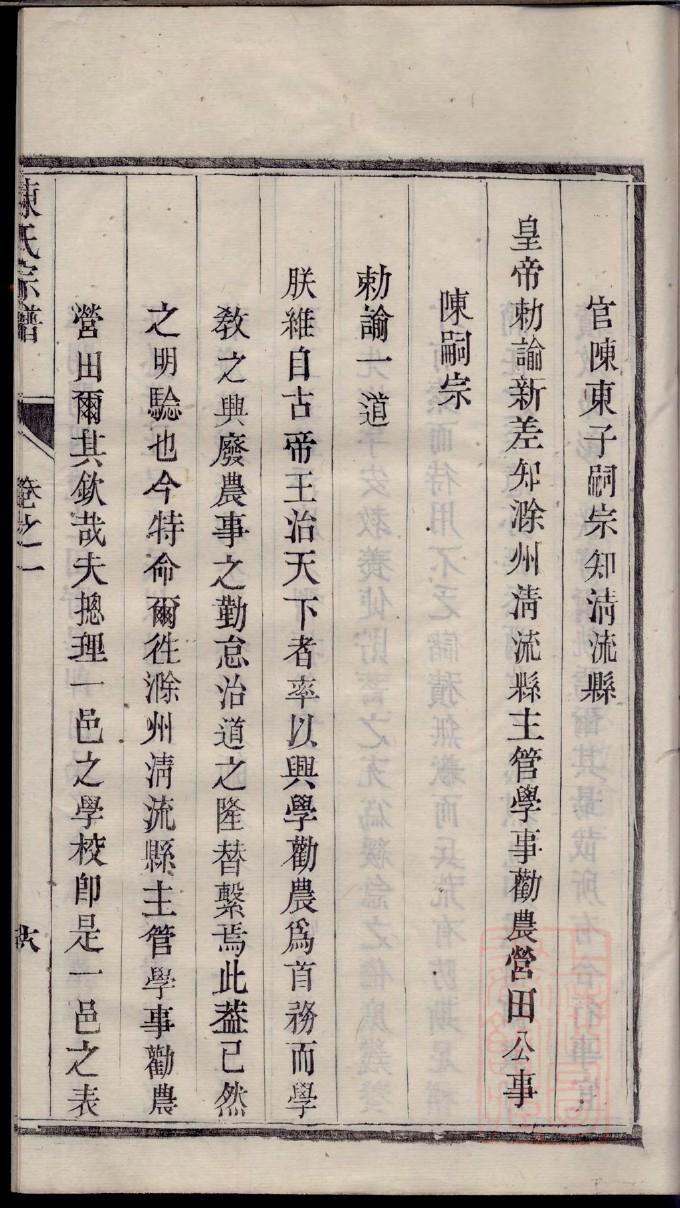 官陳東子嗣宗知淸流縣
皇帝勅諭新差知滁州淸流縣主管學事勸農營田公事
陳嗣宗
勅諭一道
朕維自古帝王治天下者率以興學勸農爲首務而學
敎之興廢農事之勤怠治道之隆替繫焉此葢已然
之明騐也今特命爾徃滁州淸流縣主管學事勸農
營田爾其欽哉夫摠理一邑之學校卽是一邑之表
陳氏宗譜
卷之一